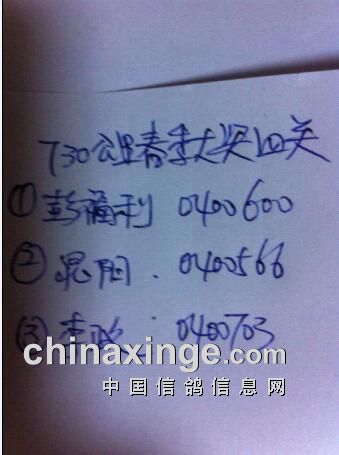 730公里春季大奖四关
① 彭福利 0400600
② 晁阳. 0400566
③ 李 : 0400703
chinaxinge.com
中国信鸽信息网